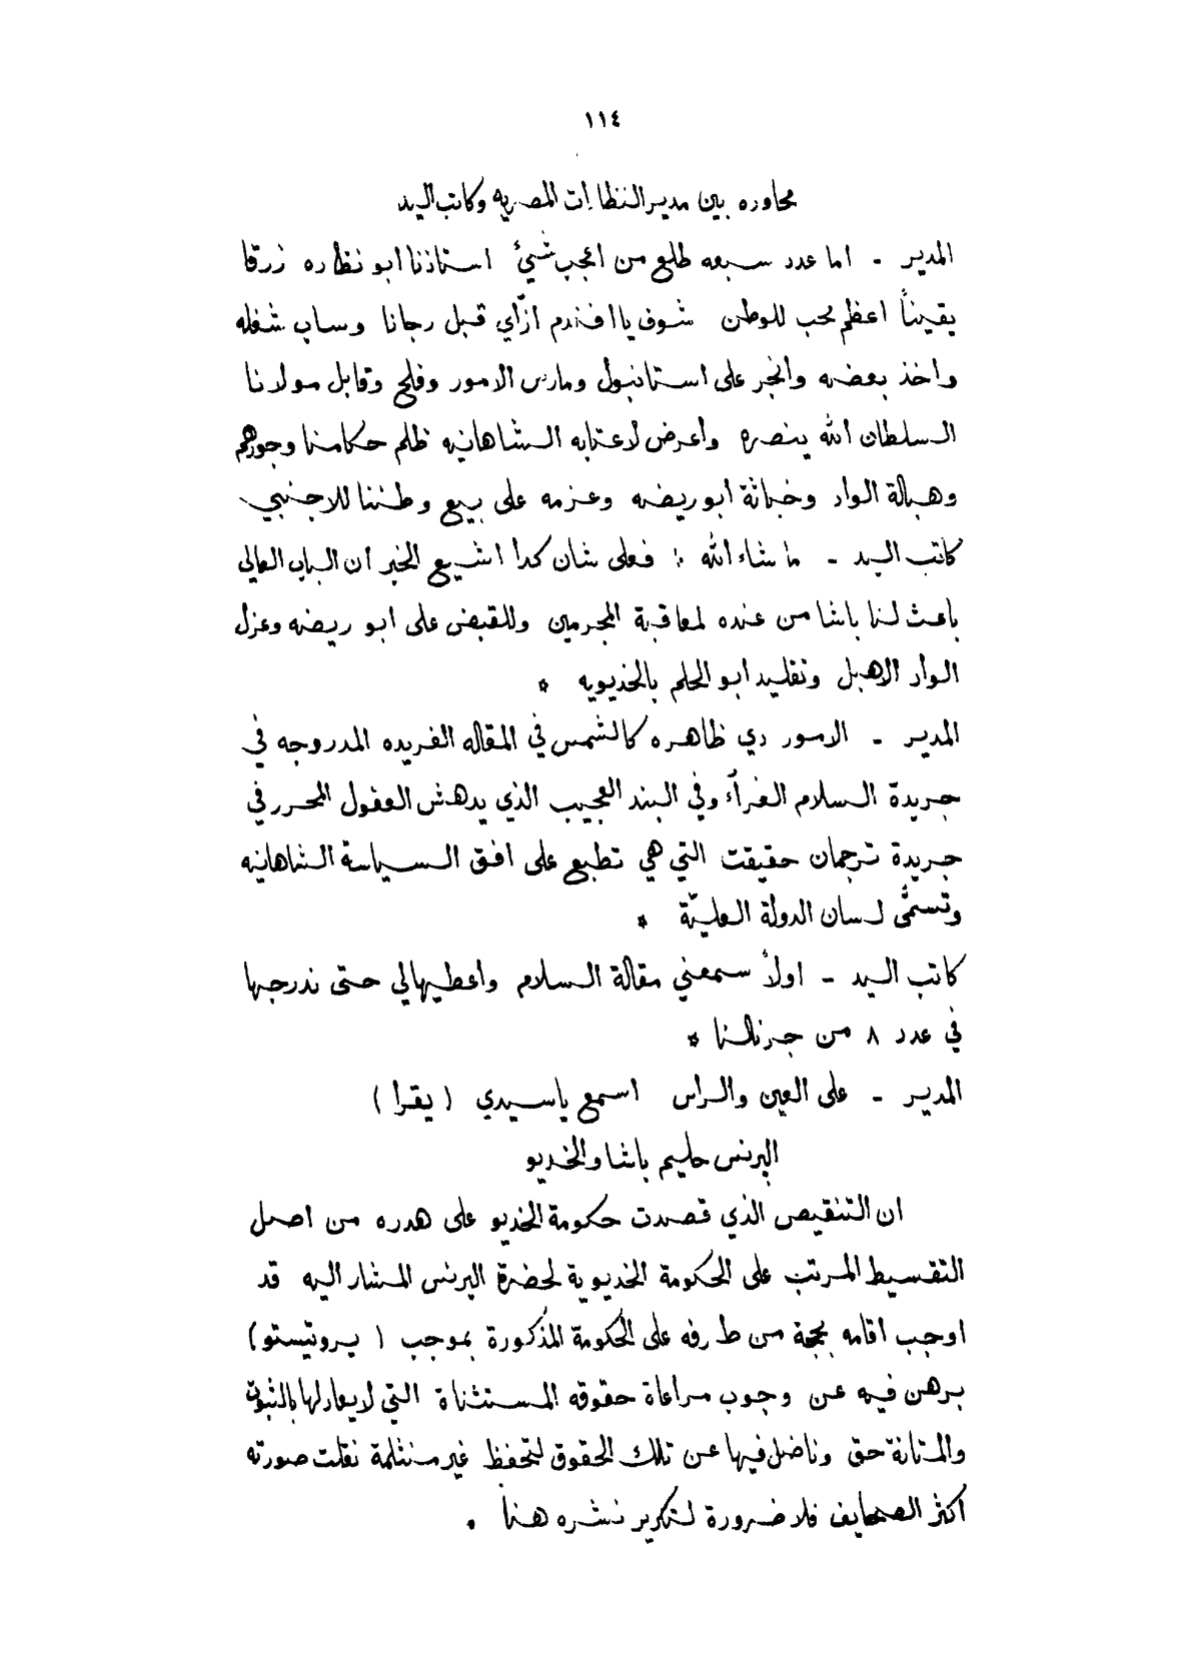 ١١٤
محاوره بين مدير النظارات المصريه وكاتب اليد
المدير - اما عدد سبعه طلع من اعجب شيئ استاذنا ابو نظاره زرقا
يقيناً اعظم محب للوطن شوف يا افندم ازّاي قبل رجانا وساب شغله
واخذ بعضه وانجر على استانبول ومارس الامور وفلح وقابل مولانا
السلطان الله ينصره واعرض لاعتابه الشاهانيه ظلم حكامنا وجورهم
وهبالة الواد وخباثة ابو ريضه وعزمه على بيع وطننا للاجنبي
كاتب اليد - ما شاء الله : فعلى شان كدا اشيع الخبر ان الباب العالي
باعث لنا باشا من عنده لمعاقبة المجرمين وللقبض على ابو ريضه وعزل
الواد الاهبل وتقليد ابو الحلم بالخديويه *
المدير - الامور دي ظاهره كالشمس في المقاله الفريده المدروجه في
جريدة السلام الغرآء وفي البند العجيب الذي يدهش العقول المحرر في
جريدة ترجمان حقيقت التي هي تطبع على افق السياسة الشاهانيه
وتسمّى لسان الدولة العليّة *
كاتب اليد - اولاً سمعني مقالة السلام واعطيهالي حتى ندرجها
في عدد ٨ من جرنالنا *
المدير - على العين والراس اسمع ياسيدي ( يقرا )
البرنس حليم باشا والخديو
ان التنقيص الذي قصدت حكومة الخديو على هدره من اصل
التقسيط المرتب على الحكومة الخديوية لحضرة البرنس المشار اليه قد
اوجب اقامه بحجة من طرفه على الحكومة المذكورة بموجب ( پروتيستو )
برهن فيه عن وجوب مراعاة حقوقه المستثناة التي لا يعادلها بالثبوت
والمتانة حق وناضل فيها عن تلك الحقوق لتحفظ غير منثلمة نقلت صورته
اكثر الصحايف فلا ضرورة لتكرير نشره هنا .